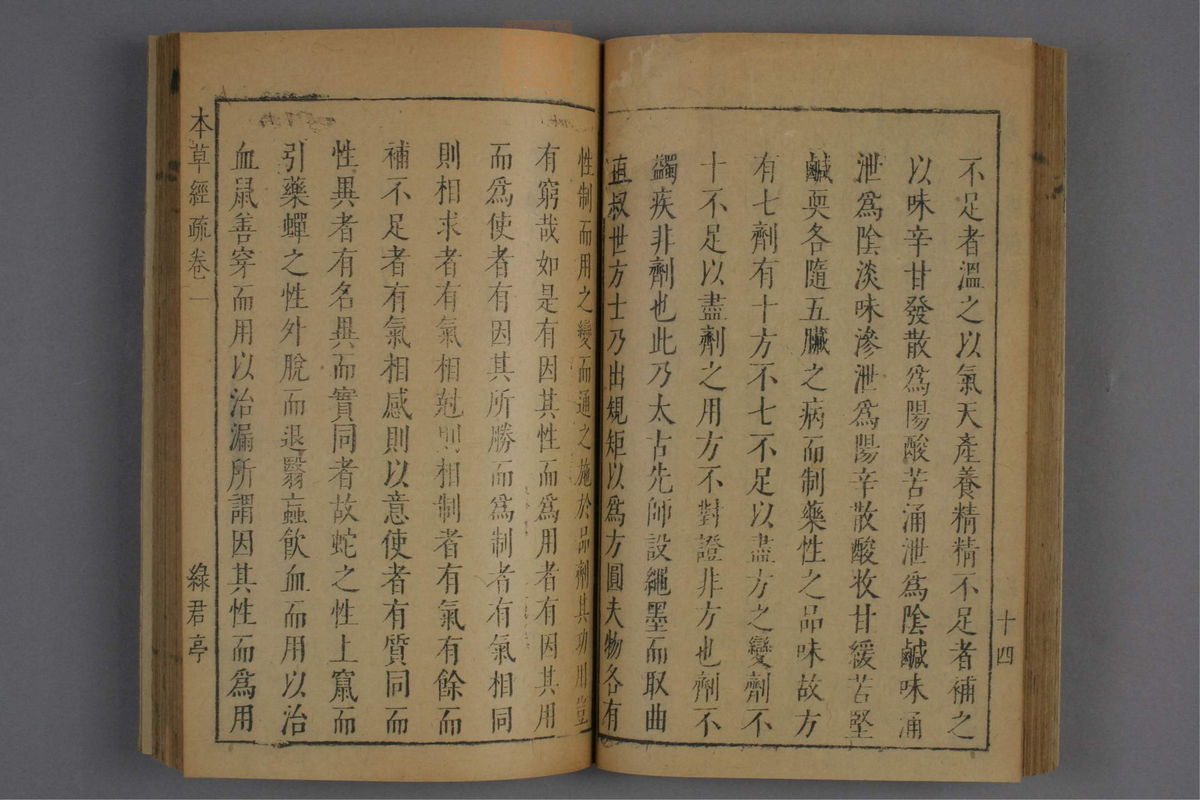 十四
不足者溫之以氣天產養精精不足者補之
以味辛甘發散爲陽酸苦涌泄爲陰鹹味涌
泄爲陰淡味滲泄爲陽辛散酸收甘緩苦堅
鹹耎各隨五臟之病而制藥性之品味故方
有七劑有十方不七不足以盡方之變劑不
十不足以盡劑之用方不對證非方也劑不
蠲疾非劑也此乃太古先師設繩墨而取曲
直叔世方士乃出規矩以爲方圓夫物各有
性制而用之變而通之施於品劑其功用豈
有窮哉如是有因其性而爲用者有因其用
而爲使者有因其所勝而爲制者有氣相同
則相求者有氣相尅則相制者有氣有餘而
補不足者有氣相感則以意使者有質同而
性異者有名異而實同者故蛇之性上竄而
引藥蟬之性外脫而退翳蝱飮血而用以治
血鼠善穿而用以治漏所謂因其性而爲用
本草經疏卷一 綠君亭